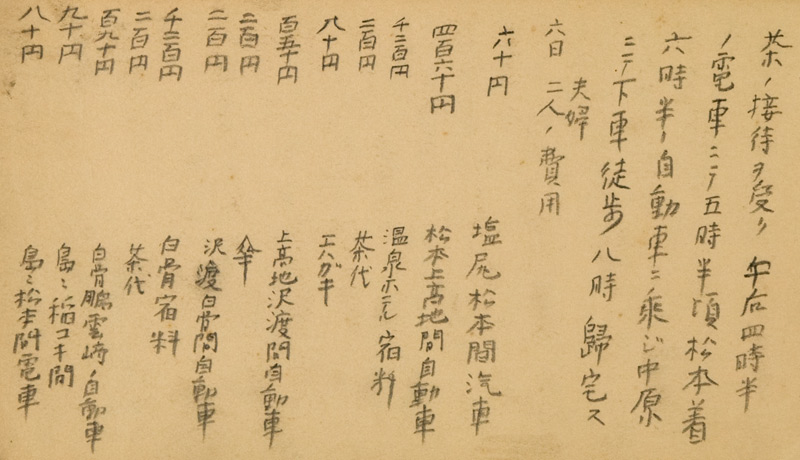 茶ノ接待ヲ受ク 午后四時半
ノ電車ニテ五時半頃松本着
六時半ノ自動車ニ乗ジ中原
ニテ下車徒歩八時歸宅ス
夫婦
六日 二人ノ費用
六十円 塩尻松本間汽車
四百六十円 松本上高地間自動車
千二百円 温泉ホテル宿料
二百円 茶代
八十円 エハガキ
百五十円 上高地沢渡間自動車
二百円 傘
二百円 沢渡白骨間自動車
千二百円 白骨宿料
二百円 茶代
百九十円 白骨鵬雲崎ノ自動車
九十円 島々稲コキ間
八十円 島々松本間電車